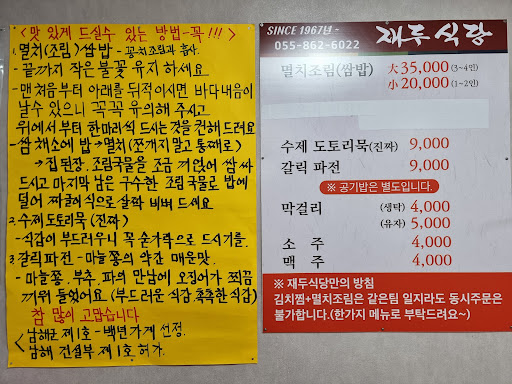 <맛 있게 드실수 있는 방법-꼭!!!>
1. 멸치(조림)쌈밥 - 꽁치조림과 흡사.
- 끝까지 작은 불꽃 유지 하세요
- 맨 처음부터 아래를 뒤적이시면 바다내음이
날수 있으니 꼭꼭 유의해 주시고
위에서부터 한마리씩 드시는 것을 권해 드려요
- 쌈 채소에 밥 → 멸치(쪼개지말고 통째로)
→ 집된장. 조림국물을 조금 끼얹어 쌈 싸
드시고 마지막 남은 구수한 조림국물로 밥에
덜어 짜글이식으로 살짝 비벼 드세요
2. 수제 도토리묵 (진짜)
- 식감이 부드러우니 꼭 숟가락으로 드시기를.
3. 갈릭 파전 - 마늘쫑의 약간 매운맛.
- 마늘쫑. 부추. 파의 만남에 오징어가 찌끔
끼워 들었어요 (부드러운 식감 촉촉한 식감)
참 많이 고맙습니다
남해군 제1호 - 백년가게 선정.
남해 건설부 제1호 허가.
SINCE 1967년 -
055-862-6022
재두식당
멸치조림(쌈밥) 大 35,000 (3~4인)
小 20,000 (1~2인)
수제 도토리묵(진짜) 9,000
갈릭 파전 9,000
※ 공기밥은 별도입니다.
막걸리 (생탁) 4,000
(유자) 5,000
소 주 4,000
맥 주 4,000
※ 재두식당만의 방침
김치찜+멸치조림은 같은팀 일지라도 동시주문은
불가합니다.(한가지 메뉴로 부탁드려요~)